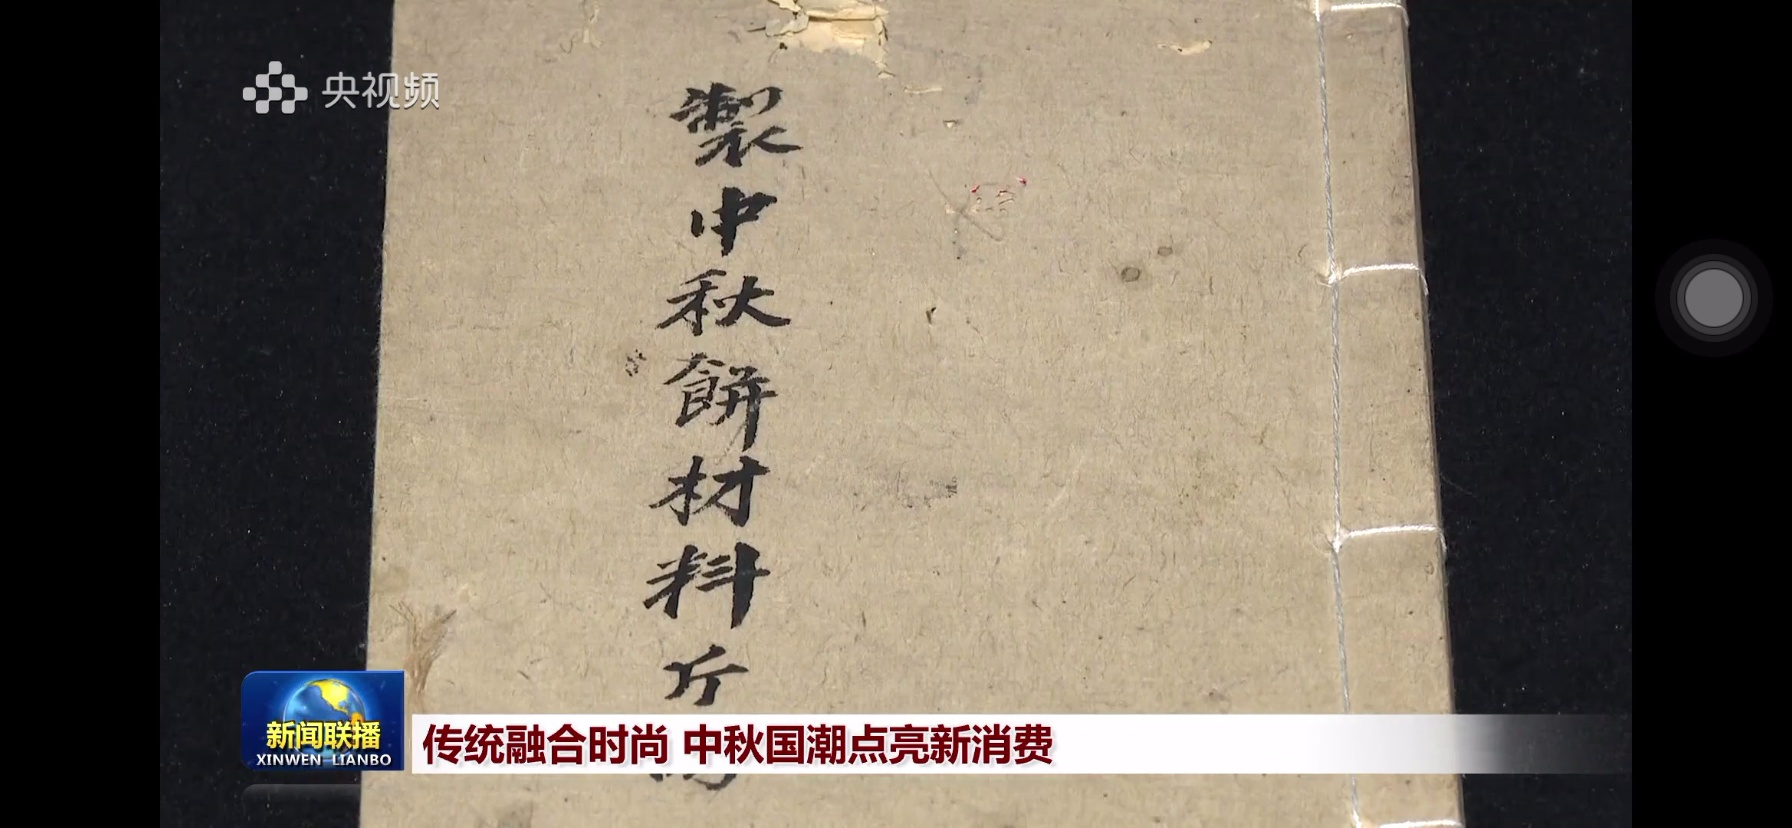 央视频
製中秋餅材料斤
新闻联播
XINWEN LIANBO
传统融合时尚 中秋国潮点亮新消费